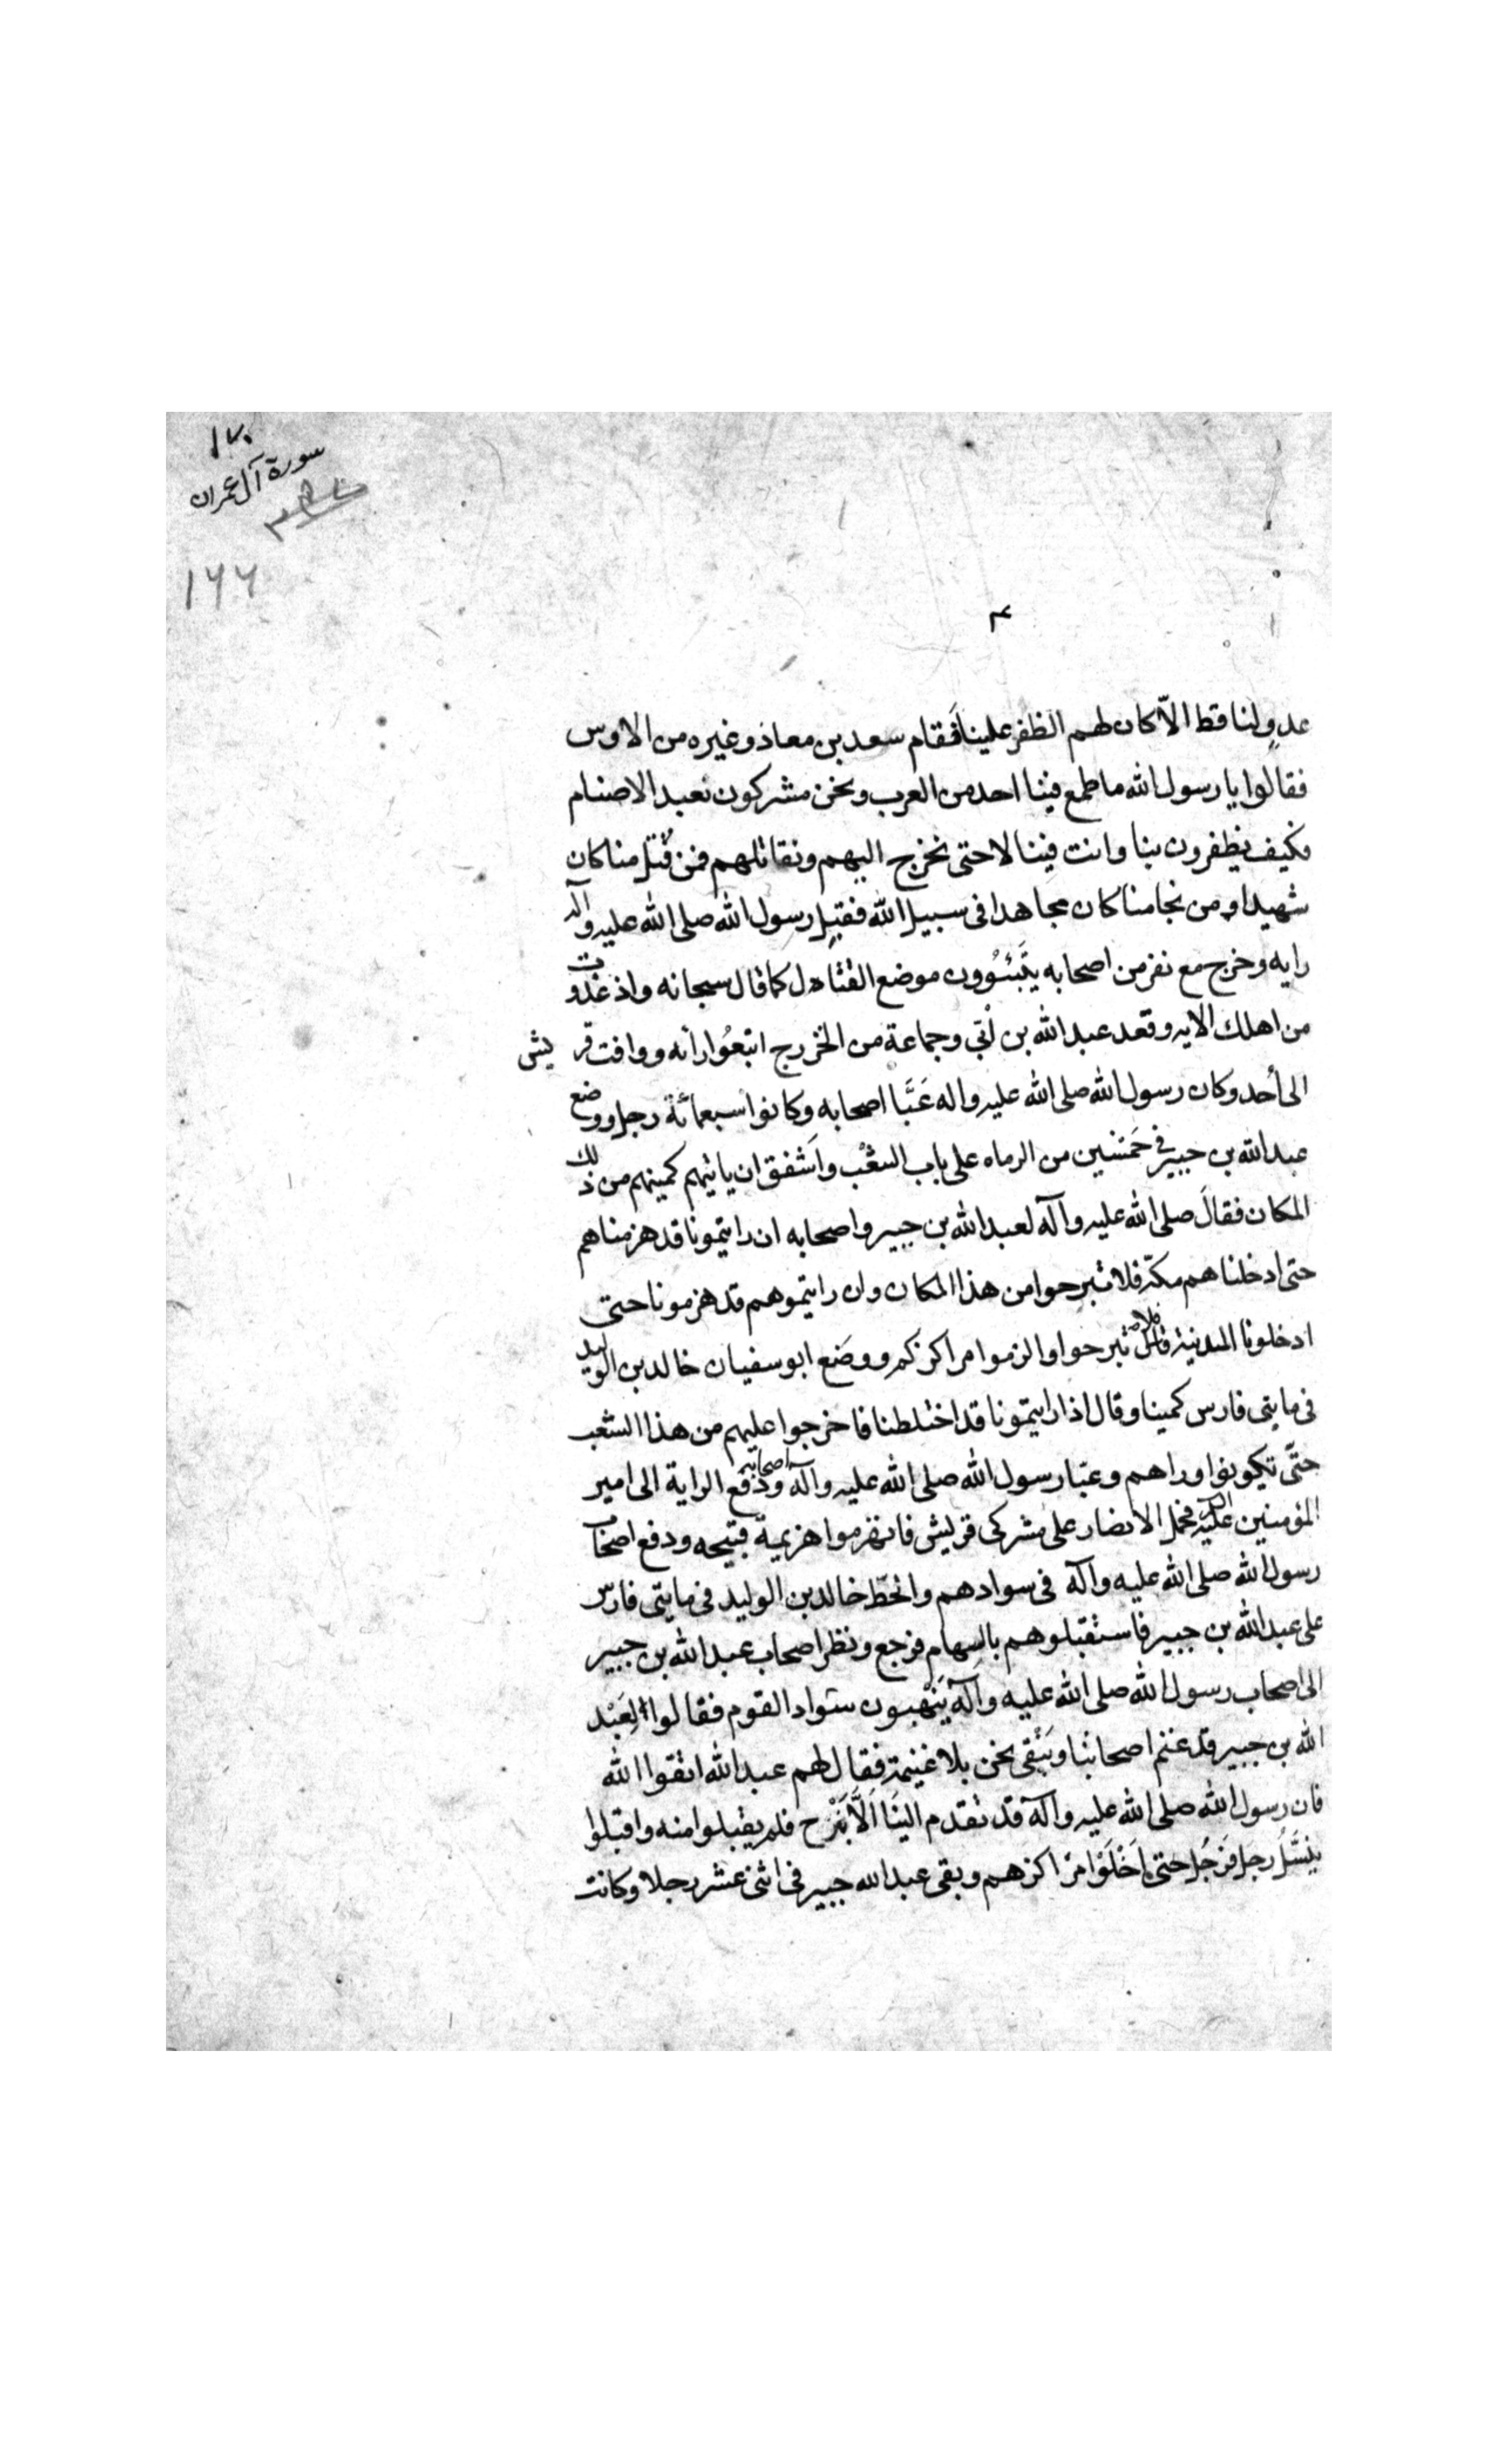 ١٧٠
سورة آل عمران
١٦٦
عدو لنا قط الاّ كان لهم الظفر علينا فَقام سعد بن معاذ وغيره من الاوس
فقالوا يا رسول الله ما طمع فينا احد من العرب ونحن مشركون نعبد الاصنام
فكيف يظفرون بنا وانت فيننا لا حتى نخرج اليهم ونقاتلهم فمن قُتل منا كان
شهيدا ومن نجا منا كان مجاهدا فى سبيل الله فقبِل رسول الله صلى الله عليه وآله
رايه وخرج مع نفر من اصحابه يتَبَبئوُون موضع القتال كما قال سبحانه واذ غدوت
من اهلك الايه وقعد عبد الله بن اُبّى وجماعة من الخزرج ابتعُوا رأنه ووافت قريش
الى أحد وكان رسول الله صلى الله عليه واله عَبَّا اصحابه وكانوا سبعمائة رجل ووضع
عبد الله بن جبير فى خَمسَين من الرماه على باب الشعْب واَشفق ان ياتيهم كمينهم من ذلك
المكان فقالَ صلى الله عليه وآله لعبد الله بن جبير واصحابه ان رايتمونا قد هزمناهم
حتى ادخلناهم مكة فلا تبرحوا من هذا المكان وان رايتموهم قد هزمونا حتى
ادخلونا المدينة فلا تبرحوا والزموا مراكزكم ووضَع ابو سفيان خالد بن الوليد
فى مايتى فارس كمينا وقال اذا رايتمونا قد اختلطنا فاخرجوا عليهم من هذا الشعب
حتّى تكونوا وراهم وعبّا رسول الله صلى الله عليه وآله اصحابه ودفع الراية الى امير
المؤمنين عليه فحمل الانصار على مشركى قريش فانهزموا هزيمة قبيحه ودفع اصحاب
رسول الله صلى الله عليه وآله فى سوادهم وانحطّ خالد بن الوليد فى مايتى فارس
على عبد الله بن جبير فاستقبلوهم بالسهام فرجع ونظر اصحاب عبد الله بن جبير
الى اصحاب رسول الله صلى الله عليه وآله يَنْهبون سَواد القوم فقالوا لِعَبْد
الله بن جبير قد غنم اصحابنا وَيَبْقى نحن بلا غنيمة فقال لهم عبد الله اتقوا الله
فان رسول الله صلى الله عليه وآله قد تقدم الينَا اَلاَّ نَبْرح فلم يقبلوا منه واقبلوا
ينسَّل رجل فرَجُل حتى اخْلَوْا مرَاكزهم وبقى عبد الله جبير فى اثنى عشر رجلا وكانت